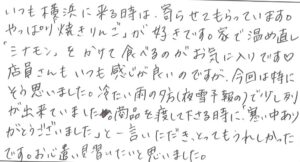 いつも横浜に来る時は、寄らせてもらっています。
やっぱり「焼きりんご」が好きです。家で温め直し
「シナモン」をかけて食べるのがお気に入りです♡
店員さんもいつも感じが良いのですが、今回は特に
そう思いました。冷たい雨の夕方(夜雪予報)ので少し列
が出来ていました。商品を渡して下さる時に、「寒い中あり
がとうございました」と一言いただき、とってもうれしかった
です。お心遣い見習いたいと思いました。